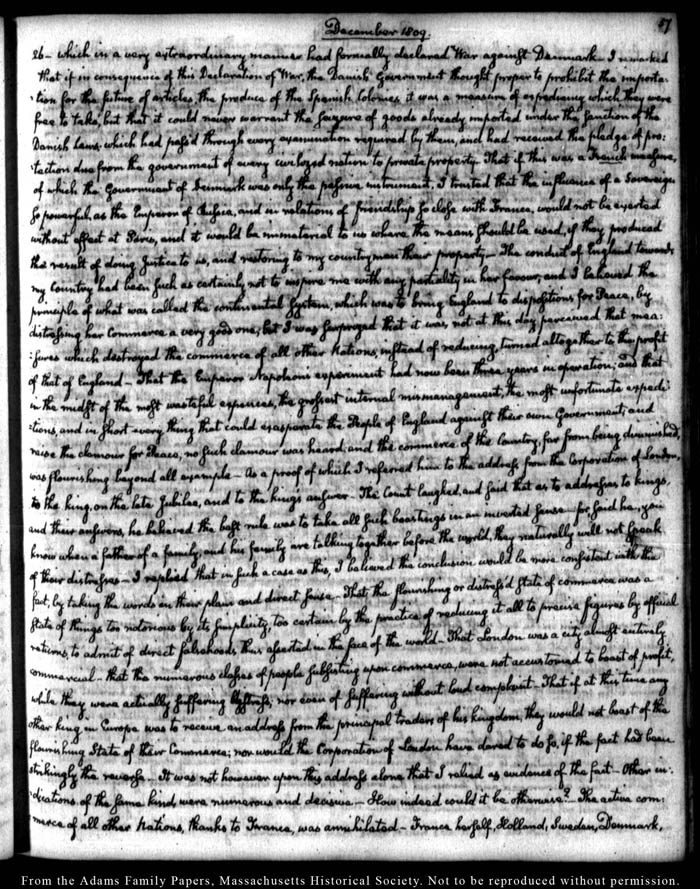 December 1809.
57
26- which in a very extraordinary manner had formally declared War against Denmark. I remarked
that if in consequence of this Declaration of War, the Danish Government thought proper to prohibit the importa:
:tion for the future of articles, the produce of the Spanish Colonies, it was a measure of expediency which they were
free to take, but that it could never warrant the seizure of goods already imported under the sanction of the
Danish laws, which had pass'd through every examination required by them, and had received the pledge of pro:
:tection due from the government of every civilized nation to private property. That if this was a French measure,
of which the Government of Denmark was only the passive instrument, I trusted that the influence of a Sovereign
so powerful, as the Emperor of Russia, and in relations of friendship so close with France, would not be exerted
without effect at Paris, and it would be immaterial to us where the means should be used, if they produced
the result of doing Justice to us, and restoring to my countrymen their property- The conduct of England towards
my Country had been such as certainly not to inspire me with any partiality in her favour, and I believed the
principle of what was called the continental System, which was to bring England to dispositions for Peace, by
distressing her Commerce a very good one; but I was surprized that it was not at this day perceived that mea:
:sures which destroyed the commerce of all other Nations, instead of reducing, turned altogether to the profit
of that of England- That the Emperor Napoleon's experiment had now been three years in operation; and that
in the midst of the most wasteful expences, the grossest internal mismanagement, the most unfortunate expedi:
:tions, and in short every thing that could exasperate the People of England against their own Government, and
raise the clamour for Peace, no such clamour was heard; and the commerce of the Country, far from being diminished,
was flourishing beyond all example- As a proof of which I referred him to the address from the Corporation of London,
to the king, on the late Jubilee, and to the king's answer- The Count laughed, and said that as to addresses to kings,
and their answers, he believed the best rule was to take all such boastings in an inverted sense- for, said he, you
know when a father of a family, and his family are talking together before the world, they naturally will not speak
of their distresses- I replied that in such a case as this, I believed the conclusion would be more consistent with the
fact, by taking the words in their plain and direct sense- That the flourishing or distress'd State of commerce was a
State of things too notorious by its simplicity, too certain by the practice of reducing it all to precise figures by official
returns, to admit of direct falsehoods thus asserted in the face of the world- That London was a city almost entirely
commercial- that the numerous classes of people subsisting upon commerce, were not accustomed to boast of profit,
while they were actually suffering distress; nor even of suffering without loud complaint- That if at this time any
other king in Europe was to receive an address from the principal traders of his kingdom, they would not boast of the
flourishing State of their Commerce; nor would the Corporation of London have dared to do so, if the fact had been
strikingly the reverse- It was not however upon this address alone that I relied as evidence of the fact- Other in:
:dications of the same kind, were numerous and decisive- How indeed could it be otherwise? The active com:
merce of all other Nations, thanks to France, was annihilated- France herself, Holland, Sweden, Denmark,
From the Adams Family Papers, Massachusetts Historical Society. Not to be reproduced without permission.